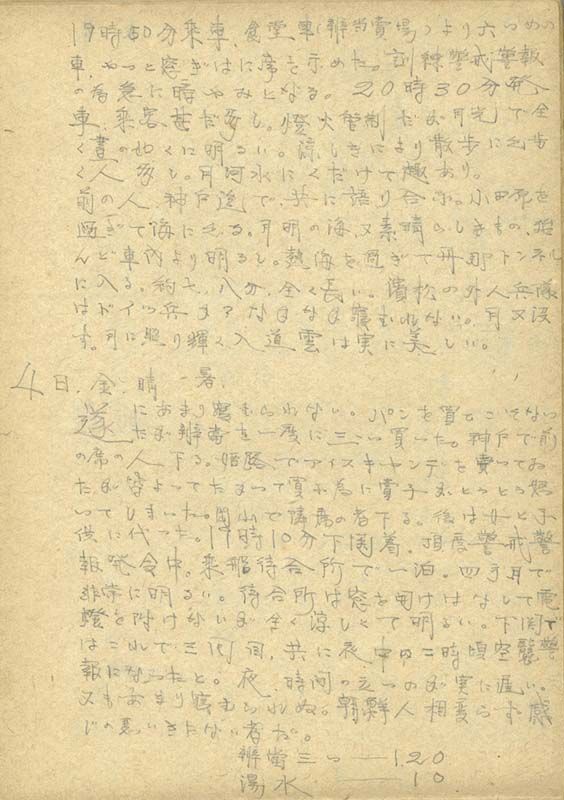 19時50分乗車、食堂車(辨当賣場)より六つめの
車、やっと窓ぎはに席を求めた。訓練警戒警報
の為急に時やみとなる。20時30分発
車、乗客甚だ多し。燈火管制だが月光で全
く晝の如くに明るい。涼しさにより散歩に出歩
く人多し。月河水にくだけて趣あり。
前の人、神戸迄で、共に語り合ふ。小田原を
過ぎて海に出る。月明の海、又素晴らしきもの、殆
んど車内より明るし。熱海を過ぎて丹那トンネル
に入る。約七、八分、全く長い。濱松の外人兵隊
はドイツ兵
す。月に照り輝く入道雲は実に美しい。
4日、金、晴 暑、
遂にあまり寝むられない。パンを買
ため辨当を一度に三つ買った。神戸で前
の席の人下る。姫路でアイスキャンデーを賣ってお
たが皆よってたかって買ふ為に賣子がとうとう怒
いてしまった。岡山で隣席の者下る。後は女と子
供に代った。17時10分下関着、丁度警戒警
報発令中。乗船待合所で一泊。四方耳で
非常に明るい。待合所は窓を開けはなして電
燈を附けないが全く涼しくて明るい。下関で
はこれで三回目、共に夜中の二時頃空襲警
報になったと。夜、時間の立つのが実に遅い。
又もあまり寝むられぬ。朝鮮人相変らず感
じの悪いきたない者だ。
辨当三つ ― 1.20
湯水 ― 10